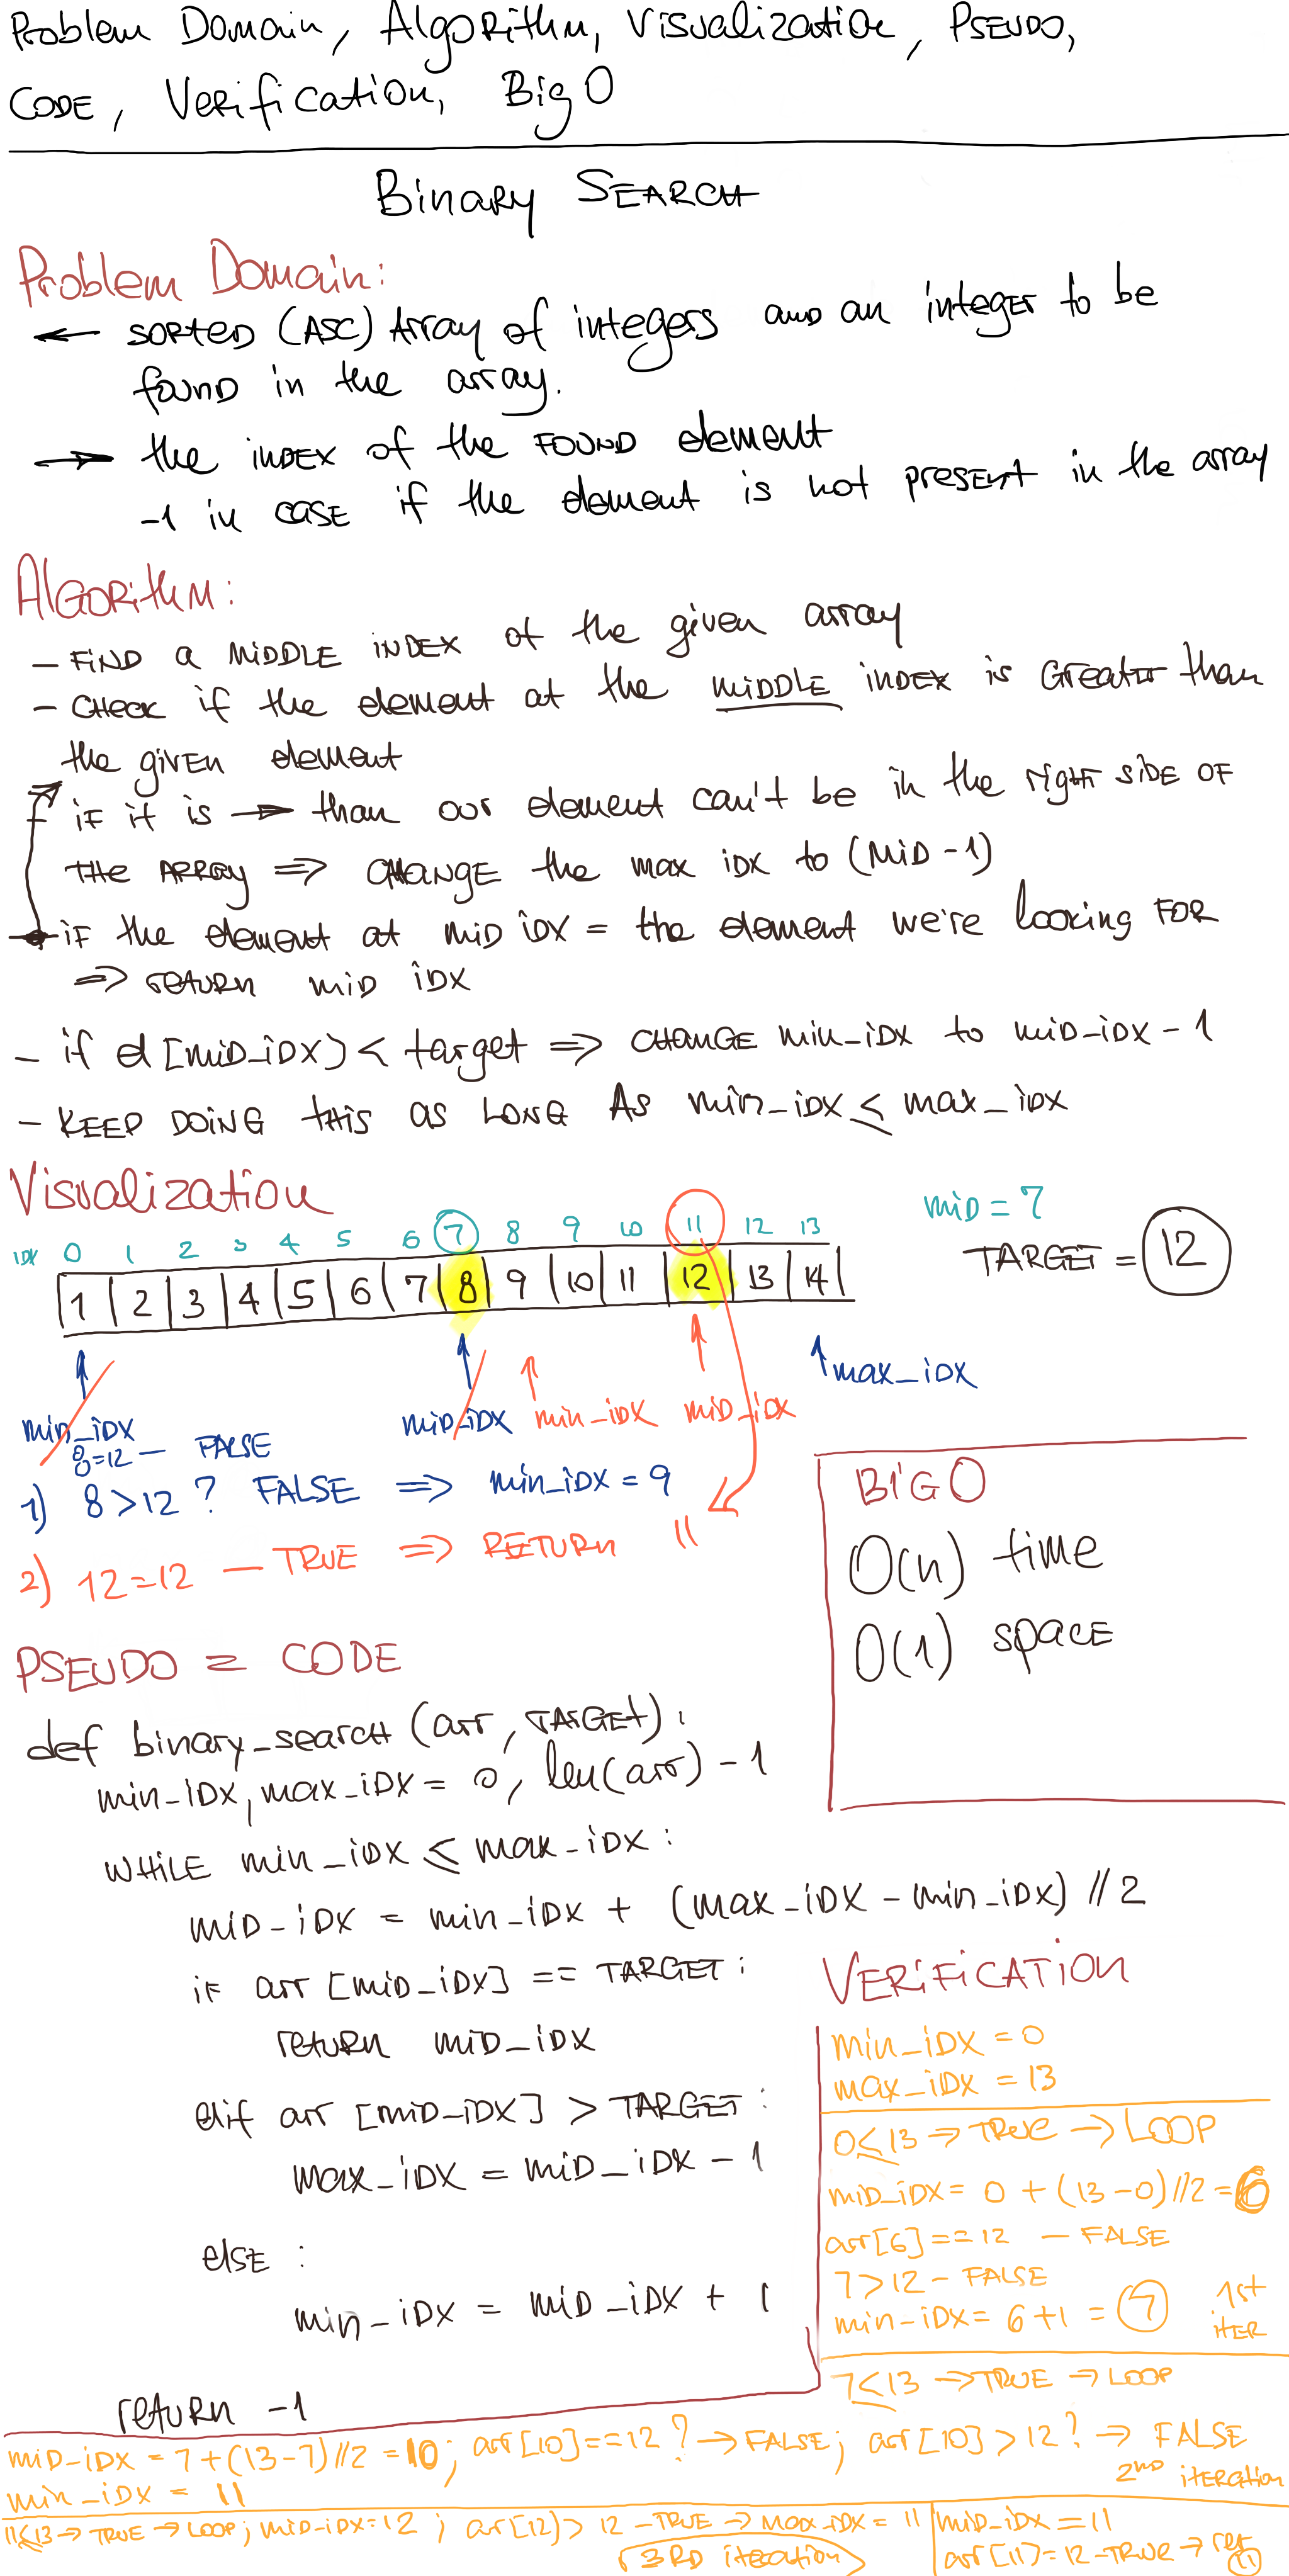 Problem Domain, Algorithm, Visualization, PSEUDO,
CODE, Verification, Big O
Binary SEARCH
Problem Domain:
← SORTED (ASC) Array of integers AND an integer to be
found in the array.
→ the INDEX of the FOUND element
-1 in CASE if the element is not present in the array
Algorithm:
- FIND a MIDDLE INDEX of the given array
- CHECK if the element at the MIDDLE INDEX is Greater than
the given element
- if it is → than our element can't be in the right side OF
the ARRAY ⇒ CHANGE the max idx to (MID - 1)
- if the element at MID idx = the element we're looking FOR
⇒ return MID idx
- if el [MID_iDX] < target ⇒ CHANGE min_iDX to MID_iDX - 1
- KEEP DOING this as LONG As min_iDX ≤ max_iDX
Visualization
mid = 7
IDX 0 1 2 3 4 5 6 7 8 9 10 11 12 13
TARGET = 12
1 2 3 4 5 6 7 8 9 10 11 12 13 14
max_iDX
min_iDX mid_iDX min_iDX mid_iDX
8=12 — FALSE
1) 8 > 12 ? FALSE ⇒ min_iDX = 9
2) 12=12 — TRUE ⇒ RETURN 11
BIG O
O(n) time
O(1) space
PSEUDO = CODE
def binary_search (arr, TARGET):
min_iDX, max_iDX = 0, len(arr) - 1
WHILE min_iDX ≤ max_iDX:
MiD_iDX = min_iDX + (max_iDX - min_iDX) // 2
if arr [MiD_iDX] == TARGET:
return MiD_iDX
elif arr [MiD_iDX] > TARGET:
max_iDX = MiD_iDX - 1
else :
min_iDX = MiD_iDX + 1
return -1
VERiFiCATiON
min_iDX = 0
max_iDX = 13
0≤13 → TRUE → LOOP
MiD_iDX = 0 + (13-0)//2 = 6
arr[6]==12 — FALSE
7>12 - FALSE
min-iDX = 6+1 = 7 1st iTER
7≤13 → TRUE → LOOP
MiD_iDX = 7+(13-7)//2 = 10; arr[10]==12? → FALSE; arr[10] > 12? → FALSE
min_iDX = 11 2ND iteration
11≤13 → TRUE → LOOP; MiD-iDX=12; arr[12] > 12 - TRUE → max_iDX = 11
3RD iteration
MiD_iDX = 11
arr[11]=12-TRUE → ret 11